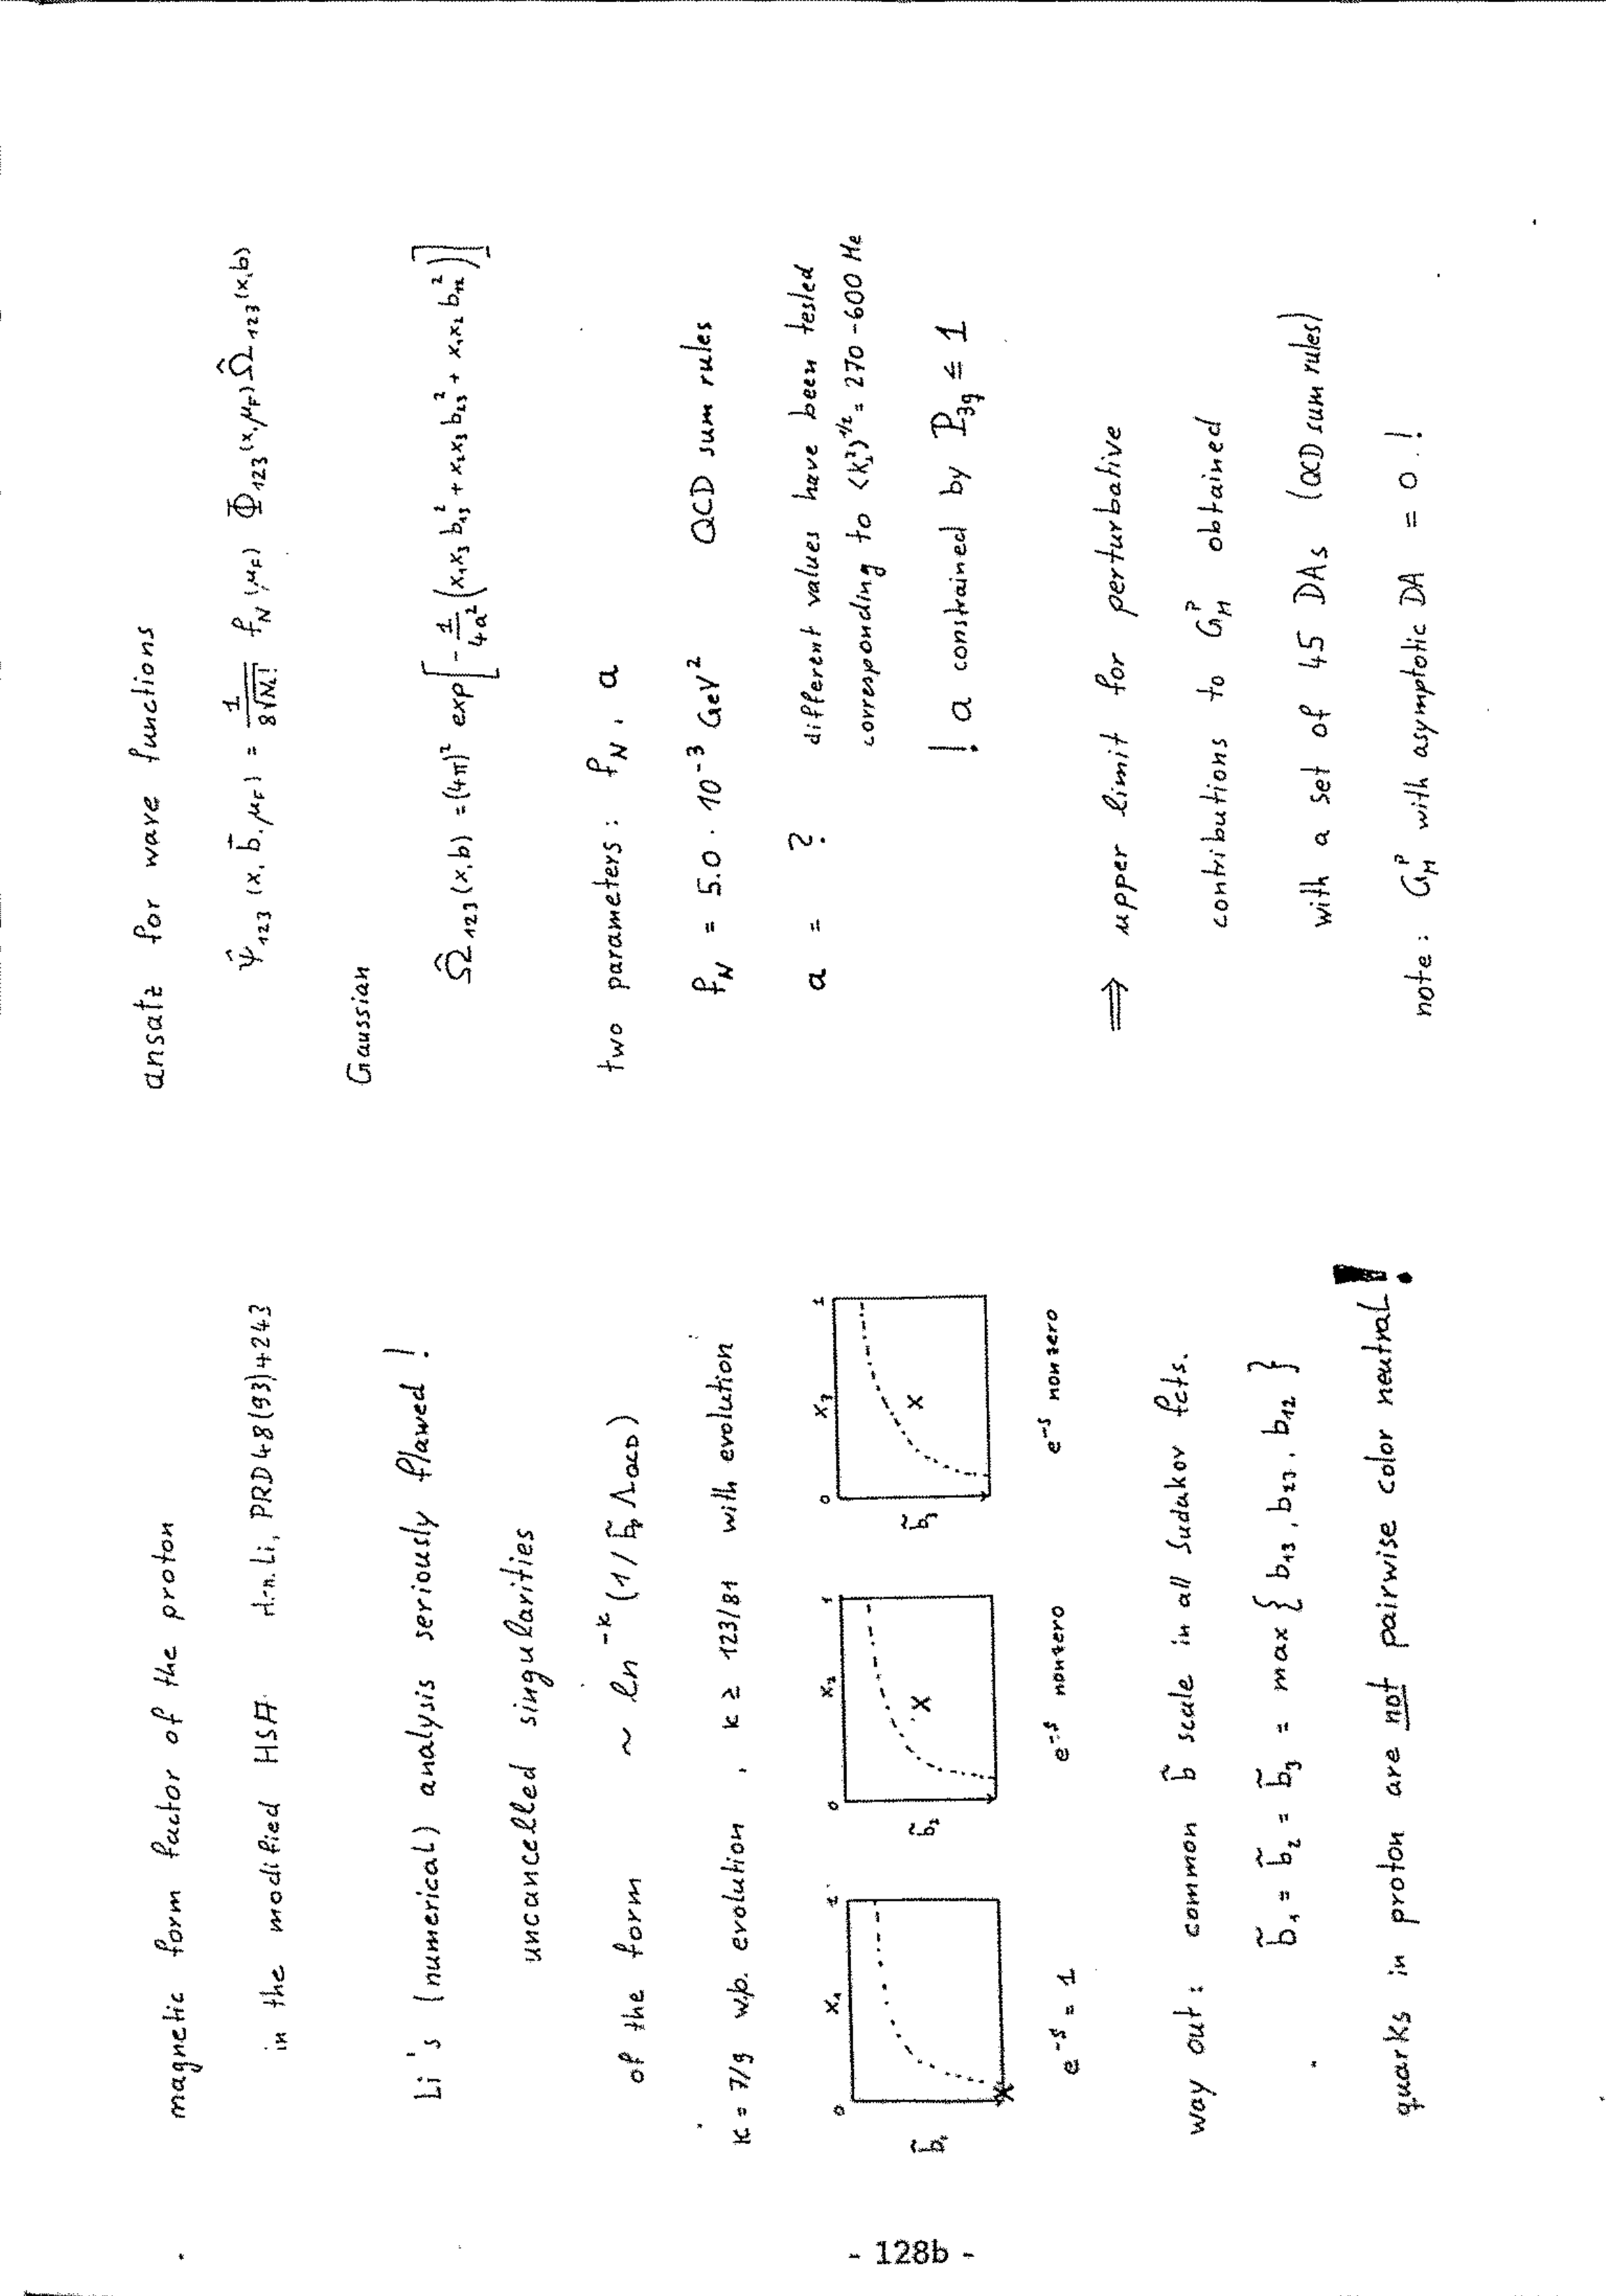 magnetic form factor of the proton
in the modified HSA H.-n. Li, PRD48(93)4243
Li's (numerical) analysis seriously flawed!
uncancelled singularities
of the form ~ ln^{-κ} (1/b̃, Λ_QCD)
κ = 7/9 w/o. evolution , κ ≥ 123/81 with evolution
0 x₁ 1
b̃₁
e^{-S} = 1
0 x₂ 1
b̃₂
e^{-S} nonzero
0 x₃ 1
b̃₃
e^{-S} nonzero
way out: common b̃ scale in all Sudakov fcts.
b̃₁ = b̃₂ = b̃₃ = max { b₁₃, b₂₃, b₁₂ }
quarks in proton are not pairwise color neutral!
ansatz for wave functions
Ψ̂₁₂₃ (x, b̄, μ_F) = 1/(8√N_c!) f_N (μ_F) Φ₁₂₃ (x, μ_F) Ω̂₁₂₃ (x, b)
Gaussian
Ω̂₁₂₃ (x, b) = (4π)² exp[ - 1/(4a²) (x₁x₃ b₁₃² + x₂x₃ b₂₃² + x₁x₂ b₁₂²)]
two parameters: f_N, a
f_N = 5.0 · 10⁻³ GeV² QCD sum rules
a = ? different values have been tested
corresponding to <k_⊥²>^{1/2} = 270-600 Me
! a constrained by P_{3q} ≤ 1
⟹ upper limit for perturbative
contributions to G_M^P obtained
with a set of 45 DAs (QCD sum rules)
note: G_M^P with asymptotic DA = 0 !
- 128b -